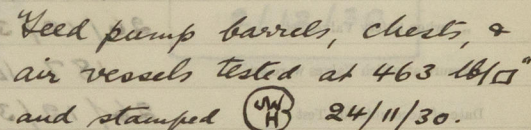 Feed pump barrels, chests, &
air vessels tested at 463 lb/□"
and stamped JW H 24/11/30.